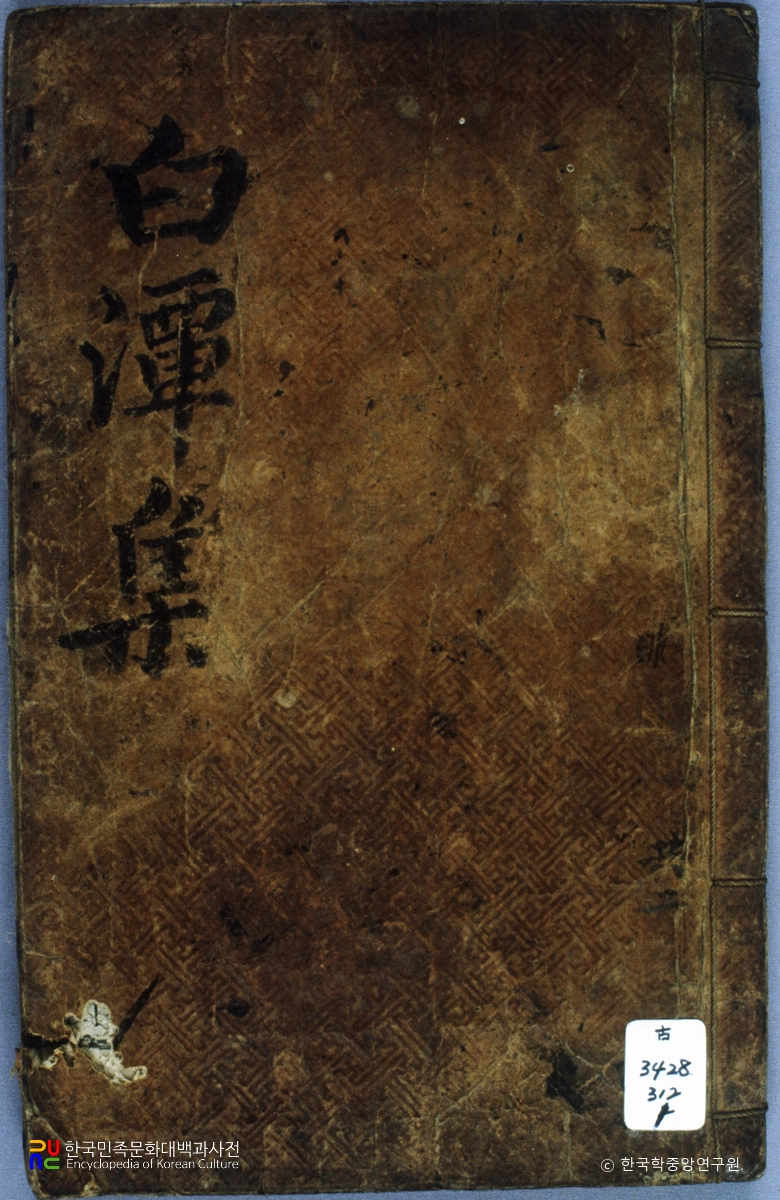 白潭集
共二
古
3428
312
한국민족문화대백과사전
Encyclopedia of Korean Culture
© 한국학중앙연구원